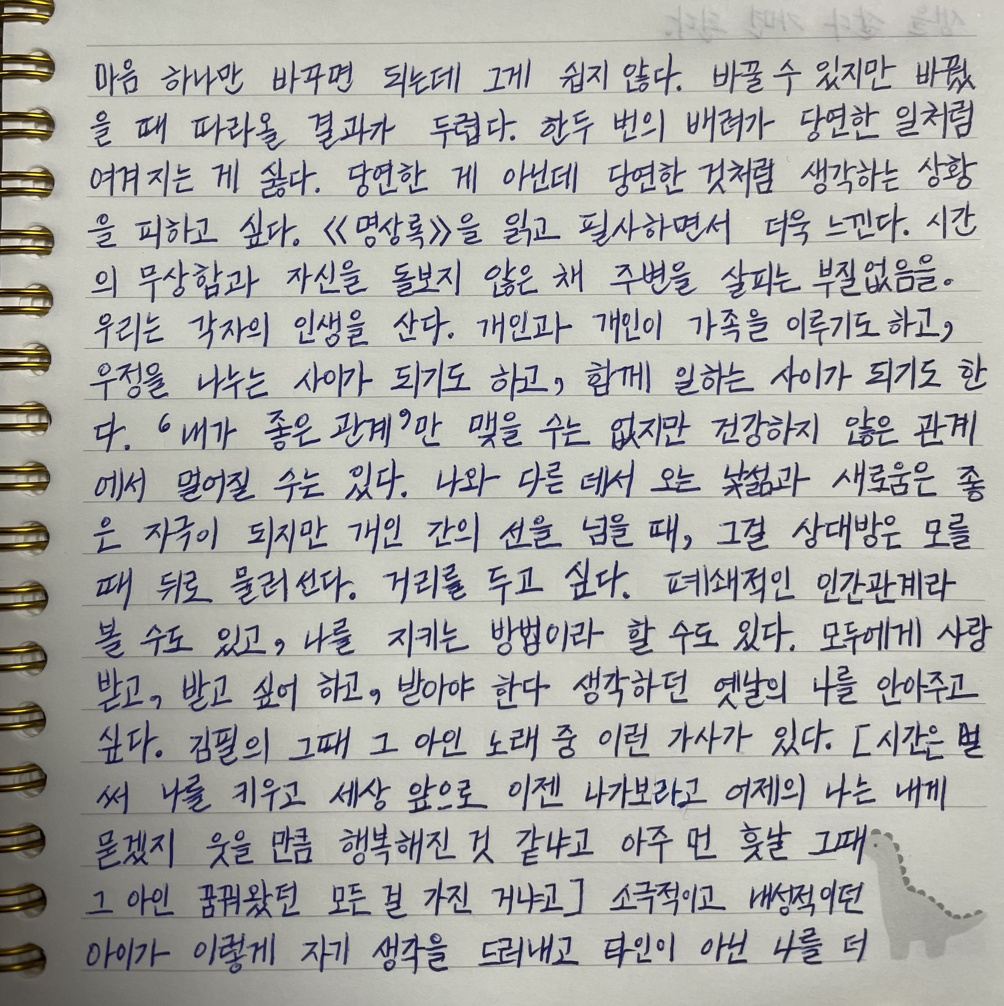 마음 하나만 바꾸면 되는데 그게 쉽지 않다. 바꿀 수 있지만 바꿨
을 때 따라올 결과가 두렵다. 한두 번의 배려가 당연한 일처럼
여겨지는 게 싫다. 당연한 게 아닌데 당연한 것처럼 생각하는 상황
을 피하고 싶다. 《명상록》을 읽고 필사하면서 더욱 느낀다. 시간
의 무상함과 자신을 돌보지 않은 채 주변을 살피는 부질없음을.
우리는 각자의 인생을 산다. 개인과 개인이 가족을 이루기도 하고,
우정을 나누는 사이가 되기도 하고, 함께 일하는 사이가 되기도 한
다. '내가 좋은 관계'만 맺을 수는 없지만 건강하지 않은 관계
에서 멀어질 수는 있다. 나와 다른 데서 오는 낯섦과 새로움은 좋
은 자극이 되지만 개인 간의 선을 넘을 때, 그걸 상대방은 모를
때 뒤로 물러선다. 거리를 두고 싶다. 폐쇄적인 인간관계라
볼 수도 있고, 나를 지키는 방법이라 할 수도 있다. 모두에게 사랑
받고, 받고 싶어 하고, 받아야 한다 생각하던 옛날의 나를 안아주고
싶다. 김필의 그때 그 아인 노래 중 이런 가사가 있다. [시간은 벌
써 나를 키우고 세상 앞으로 이젠 나가보라고 어제의 나는 내게
묻겠지 웃을 만큼 행복해진 것 같냐고 아주 먼 훗날 그때
그 아인 꿈꿔왔던 모든 걸 가진 거냐고] 소극적이고 내성적이던
아이가 이렇게 자기 생각을 드러내고 타인이 아닌 나를 더